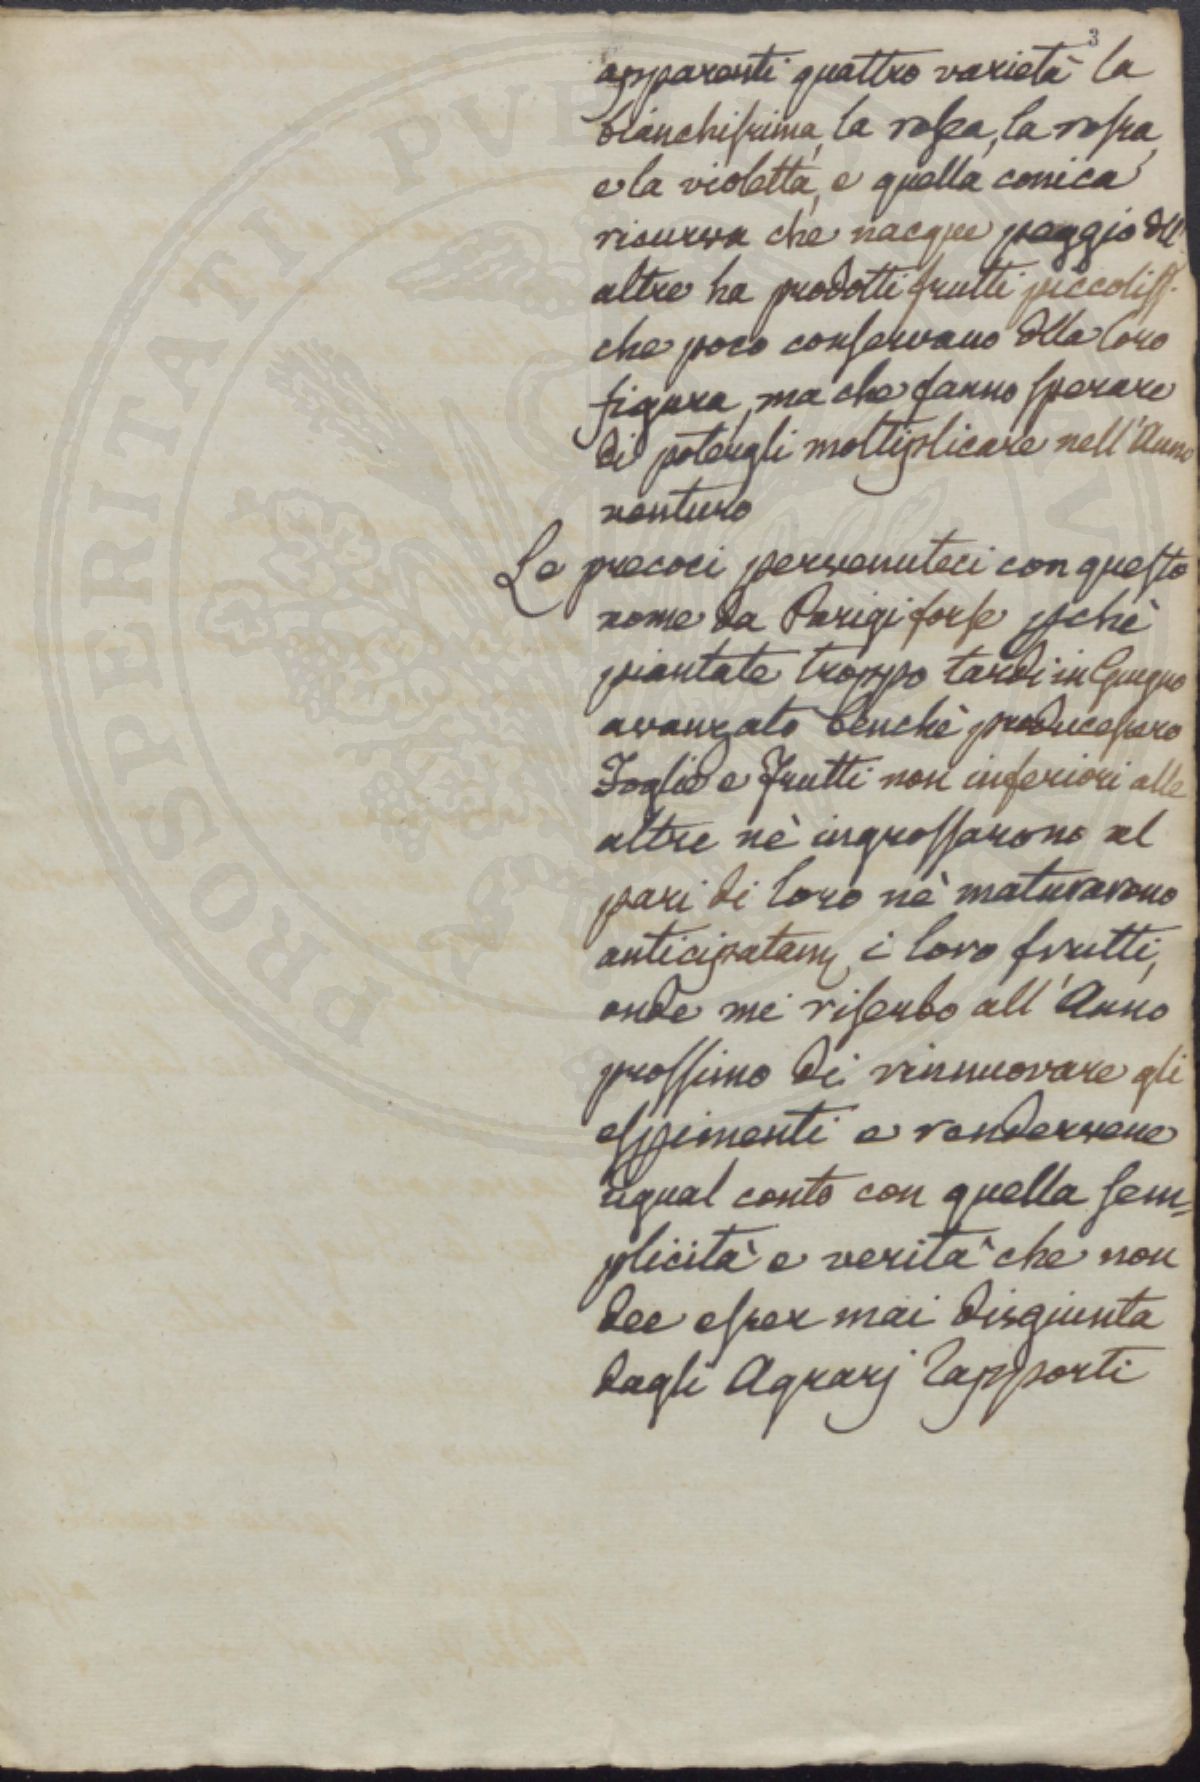 3
apparenti quattro varietà la
bianchissima, la rosea, la rossa,
e la violetta, e quella conica
ricurva che nacque peggio dell'
altre ha prodotti frutti piccoliss.
che poco conservano dlla loro
figura, ma che fanno sperare
di potergli moltiplicare nell'Anno
venturo
Le precoci pervenuteci con questo
nome da Parigi forse pchè
piantate troppo tardi in Giugno
avanzato benchè producessero
Foglie e Frutti non inferiori alle
altre nè ingrossarono al
pari di loro nè maturarono
anticipatam i loro frutti,
onde mi riserbo all'Anno
prossimo di rinnuovare gli
esppimenti e rendervene
ugual conto con quella sem=
plicità e verità che non
dee esser mai disgiunta
dagli Agrarj Rapporti
PROSPERITATI PUBLICAE